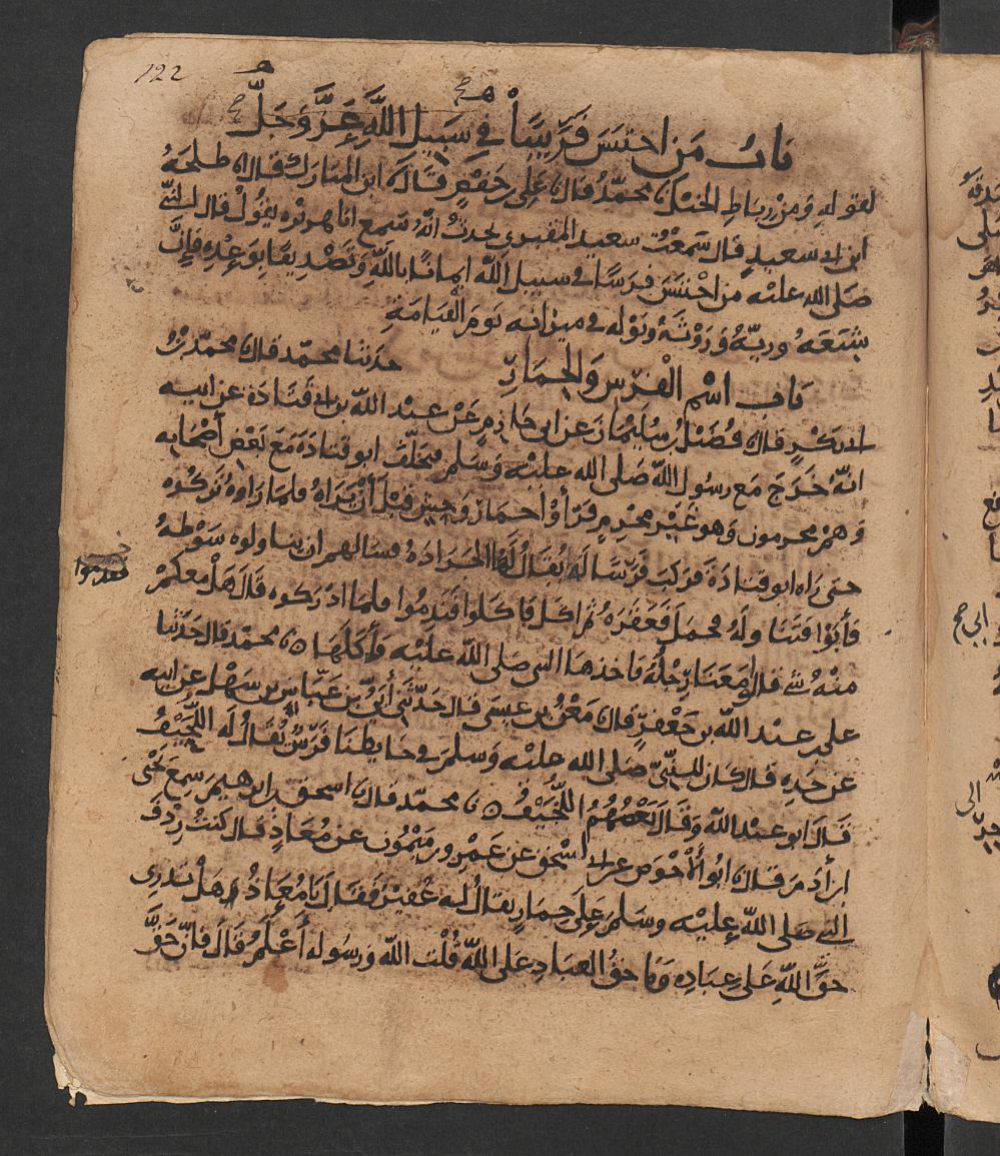 122
باب من احتبس فرسا في سبيل الله عز وجل
لقوله ومن رباط الخيل نا محمد قال نا علي بن حفص قال نا ابن المبارك قال نا طلحة
ابن ابي سعيد قال سمعت سعيد المقبري يحدث انه سمع ابا هريرة يقول قال النبي
صلى الله عليه من احتبس فرسا في سبيل الله ايمانا بالله وتصديقا بوعده فإن
شبعه وريه وروثه وبوله في ميزانه يوم القيامة
باب اسم الفرس والحمار حدثنا محمد قال نا محمد بن
ابي بكر قال نا فضيل بن سليمان عن ابي حازم عن عبد الله بن ابي قتادة عن ابيه
انه خرج مع رسول الله صلى الله عليه وسلم فتخلف ابو قتادة مع بعض أصحابه
وهم محرمون وهو غير محرم فرأوا حمار وحش قبل أن يراه فلما راوه تركوه
حتى راه ابو قتادة فركب فرسا له يقال له الجرادة فسالهم ان يناولوه سوطه
فأبوا فتناوله فحمل فعقره ثم اكل فاكلوا فندموا فلما ادركوه قال هل معكم
فقدموا
منه شي قال معنا رجله فاخذها النبي صلى الله عليه فأكلها نا محمد قال حدثنا
علي بن عبد الله بن جعفر قال نا معن بن عيسى قال حدثني أبي بن عباس بن سهل عن ابيه
عن جده قال كان للنبي صلى الله عليه وسلم في حايطنا فرس يقال له اللحيف
قال ابو عبد الله وقال بعضهم اللخيف نا محمد قال نا اسحق بن ابرهيم سمع يحيى
ابن أدم قال نا ابو الأحوص عن ابي اسحق عن عمرو بن ميمون عن معاذ قال كنت ردف
النبي صلى الله عليه وسلم على حمار يقال له عفير فقال يا معاذ هل تدري
حق الله على عباده وما حق العباد على الله قلت الله ورسوله أعلم قال فان حق